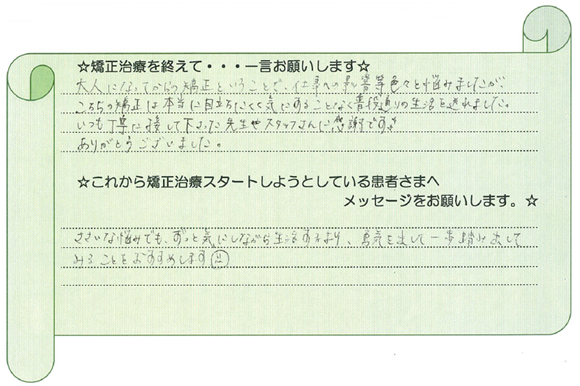 ☆矯正治療を終えて・・・一言お願いします☆
大人になってからの矯正ということで、仕事への影響等色々と悩みましたが
こちらの矯正は本当に目立ちにくく気にすることなく普段通りの生活を送れました。
いつも丁寧に接して下さった先生やスタッフさんに感謝です。
ありがとうございました。
☆これから矯正治療スタートしようとしている患者さまへ
メッセージをお願いします。☆
ささいな悩みでも、ずっと気にしながら生活するより、勇気を出して一歩踏み出して
みることをおすすめします